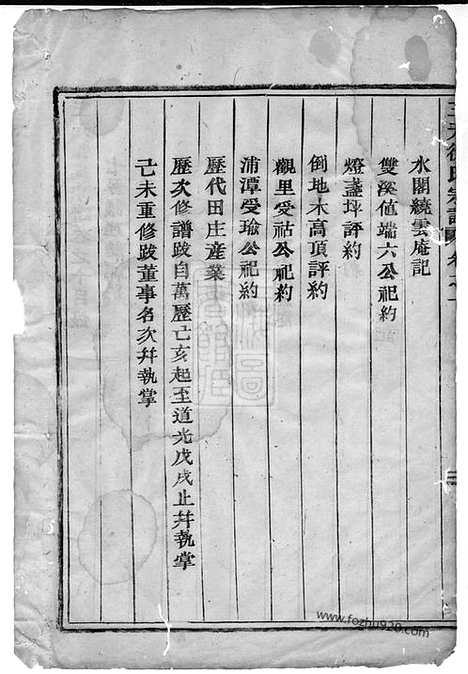 氏宗譜
水閣繞雲庵記
雙溪值端六公祀約
燈盞坪評約
倒地木高頂評約
觀里受祜公祀約
浦潭受瑜公祀約
歷代田庄產業
歷次修譜跋自萬歷己亥起至道光戊戌止幷執掌
己未重修跋董事名次幷執掌
www.fozhu920.com